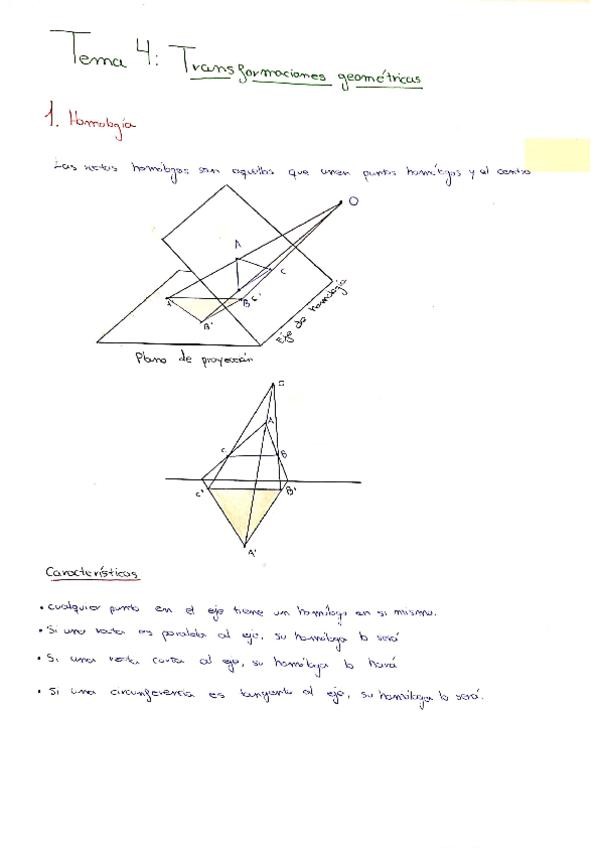 Tema 4: Transformaciones geométricas
1. Homología
Las rectas homólogas son aquellas que unen puntos homólogos y el centro
O
A
C
A'
B C'
B'
Eje de homología
Plano de proyección
O
A
C
B
C'
B'
A'
Características
• Cualquier punto en el eje tiene un homólogo en si mismo.
• Si una recta es paralela al eje, su homóloga lo será
• Si una recta corta al eje, su homóloga lo hará
• Si una circunferencia es tangente al eje, su homóloga lo será.